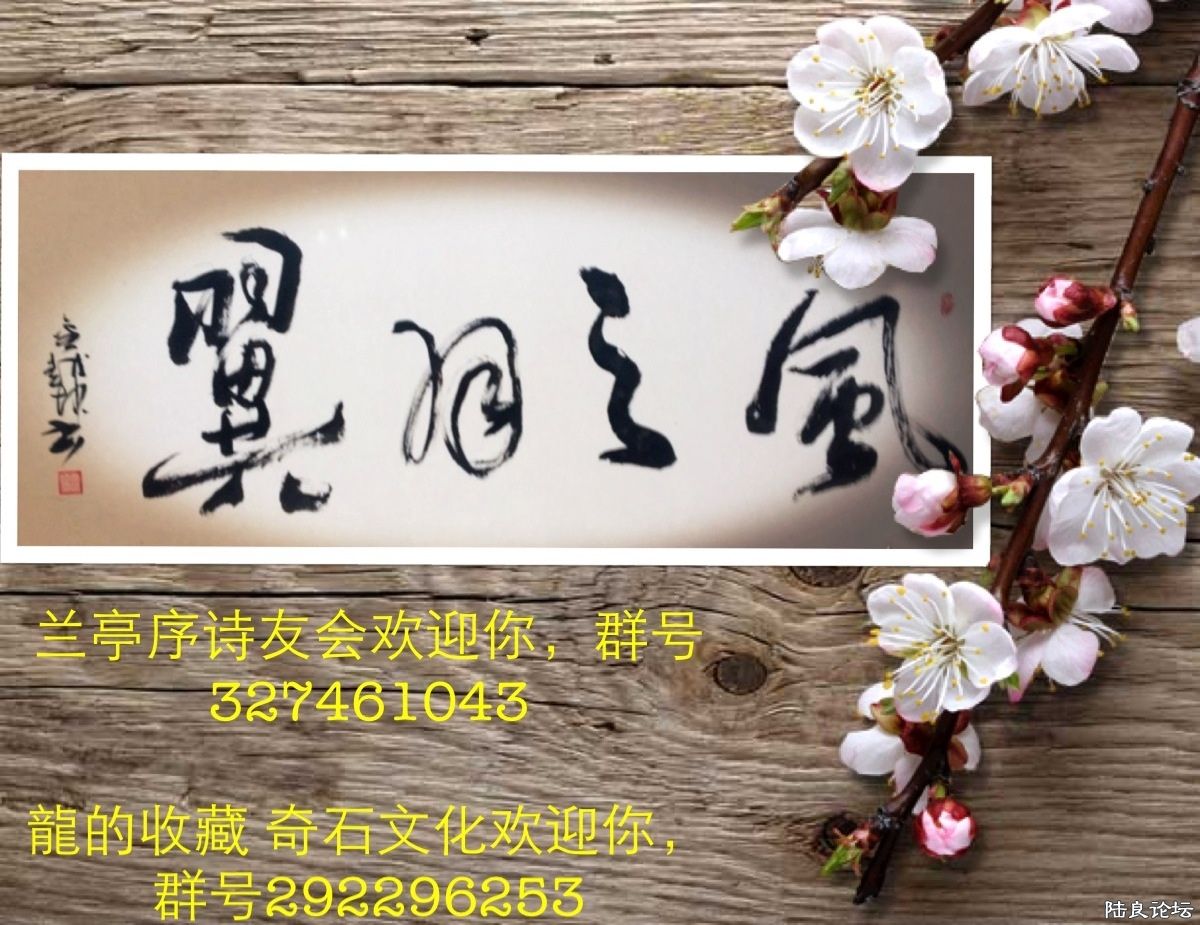 風之羽翼
兰亭序诗友会欢迎你，群号
327461043
龍的收藏 奇石文化欢迎你，
群号292296253
陆良论坛